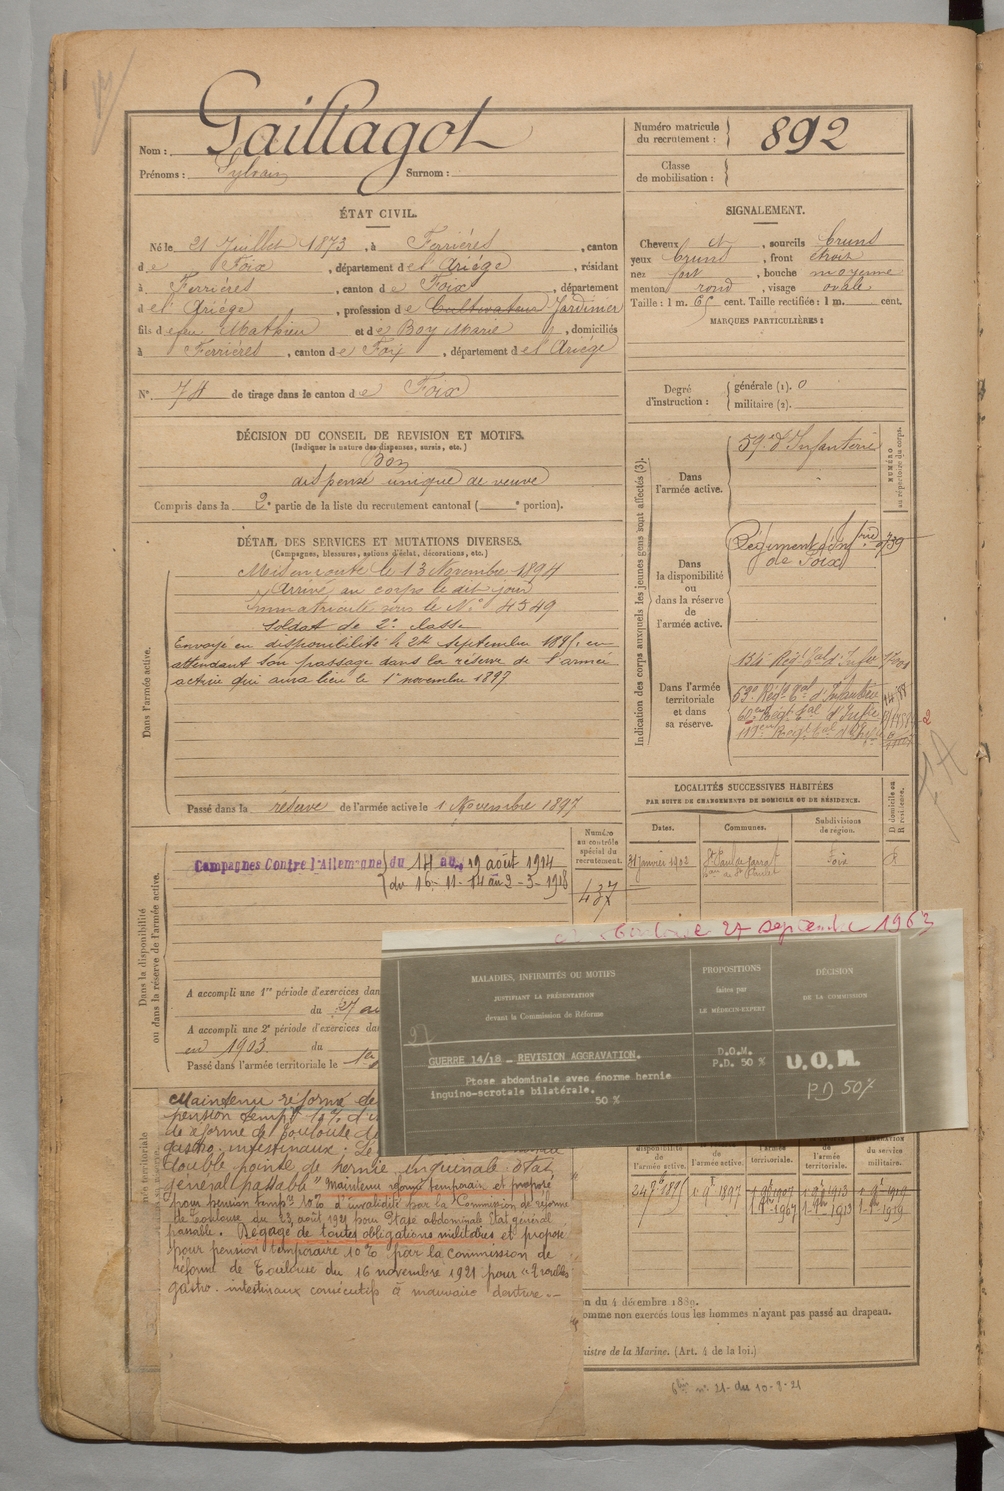 Nom : Gaillagot
Prénoms : Sylvain Surnom :
Numéro matricule du recrutement : 892
Classe de mobilisation :
ÉTAT CIVIL.
Né le 21 Juillet 1873, à Ferrières, canton
de Foix, département de l'Ariège, résidant
à Ferrières, canton de Foix, département
de l'Ariège, profession de Cultivateur Jardinier
fils de feu Mathieu et de Boy Marie, domiciliés
à Ferrières, canton de Foix, département de l'Ariège
N° 74 de tirage dans le canton de Foix
SIGNALEMENT.
Cheveux et, sourcils bruns
yeux bruns, front étroit
nez fort, bouche moyenne
menton rond, visage ovale
Taille : 1 m. 65 cent. Taille rectifiée : 1 m. cent.
MARQUES PARTICULIÈRES :
Degré d'instruction : générale (1). 0
militaire (2).
DÉCISION DU CONSEIL DE REVISION ET MOTIFS.
(Indiquer la nature des dispenses, sursis, etc.)
Bon
dispensé unique de veuve
Compris dans la 2e partie de la liste du recrutement cantonal ( e portion).
DÉTAIL DES SERVICES ET MUTATIONS DIVERSES.
(Campagnes, blessures, actions d'éclat, décorations, etc.)
Dans l'armée active.
Mis en route le 13 Novembre 1894
Arrivé au corps le dit jour
Immatriculé sous le N° 4549
Soldat de 2e classe
Envoyé en disponibilité le 24 septembre 1895, en
attendant son passage dans la réserve de l'armée
active qui aura lieu le 1er novembre 1897
Passé dans la réserve de l'armée active le 1 Novembre 1897
Indication des corps auxquels les jeunes gens sont affectés (3).
NUMÉRO au répertoire du corps.
Dans l'armée active.
59e d'Infanterie
Dans la disponibilité ou dans la réserve de l'armée active.
Régiment d'Infrie
de Foix
Dans l'armée territoriale et dans sa réserve.
134e Regt tal d'Infie
53e Regt tal d'Infanterie
LOCALITÉS SUCCESSIVES HABITÉES
PAR SUITE DE CHANGEMENTS DE DOMICILE OU DE RÉSIDENCE.
Dates. Communes. Subdivisions de région. D domicile ou R résidence.
21 janvier 1902 St Paul de Jarrat Foix R
Dans la disponibilité ou dans la réserve de l'armée active.
Numéro au contrôle spécial du recrutement.
437
Campagnes Contre l'Allemagne du 14 au 19 août 1914
du 16-11-14 au 2-3-1918
A accompli une 1re période d'exercices dan
du 27 au
A accompli une 2e période d'exercices dan
en 1903. du
Passé dans l'armée territoriale le 1er
27 septembre 1963
MALADIES, INFIRMITÉS OU MOTIFS
JUSTIFIANT LA PRÉSENTATION
devant la Commission de Réforme
PROPOSITIONS
faites par
LE MÉDECIN-EXPERT
DÉCISION
DE LA COMMISSION
GUERRE 14/18 - REVISION AGGRAVATION.
Ptose abdominale avec énorme hernie
inguino-scrotale bilatérale.
50 %
D.O.M.
P.D. 50 %
U.O.M.
PD 50%
Maintenu réformé
pension tempre 10% d'
de réforme de Toulouse
gastro-intestinaux.
double pointe de hernie inguinale état
général passable" Maintenu réformé temporaire et proposé
pour pension tempre 10% d'invalidité par la Commission de réforme
de Toulouse du 23 août 1921 pour Ptose abdominale Etat général
passable. Dégagé de toutes obligations militaires et proposé
pour pension temporaire 10% par la Commission de
réforme de Toulouse du 16 novembre 1921 pour "Troubles
gastro-intestinaux consécutifs à mauvaise denture"
disponibilité de l'armée active.
de l'armée active.
territoriale.
de l'armée territoriale.
du service militaire.
24 7bre 1895
1 9bre 1897
1 9bre 1907
1-9bre 1913
1-9bre 1919
n du 4 décembre 1889.
omme non exercés tous les hommes n'ayant pas passé au drapeau.
nistre de la Marine. (Art. 4 de la loi.)
n° 21 du 10-8-21